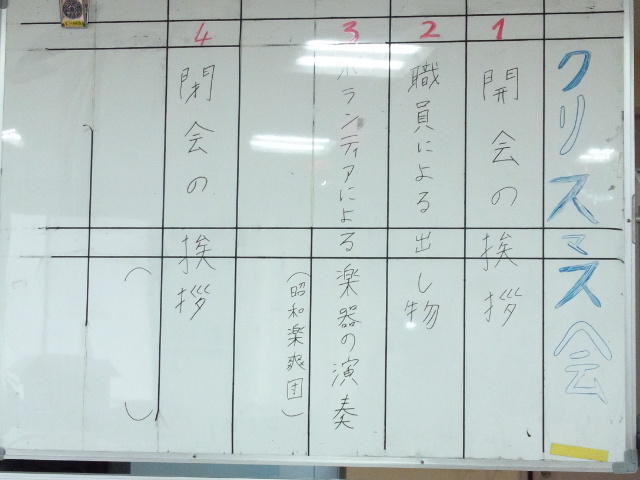 クリスマス会
1 開会の挨拶
2 職員による出し物
3 ボランティアによる楽器の演奏
(昭和楽爽団)
4 閉会の挨拶
( )